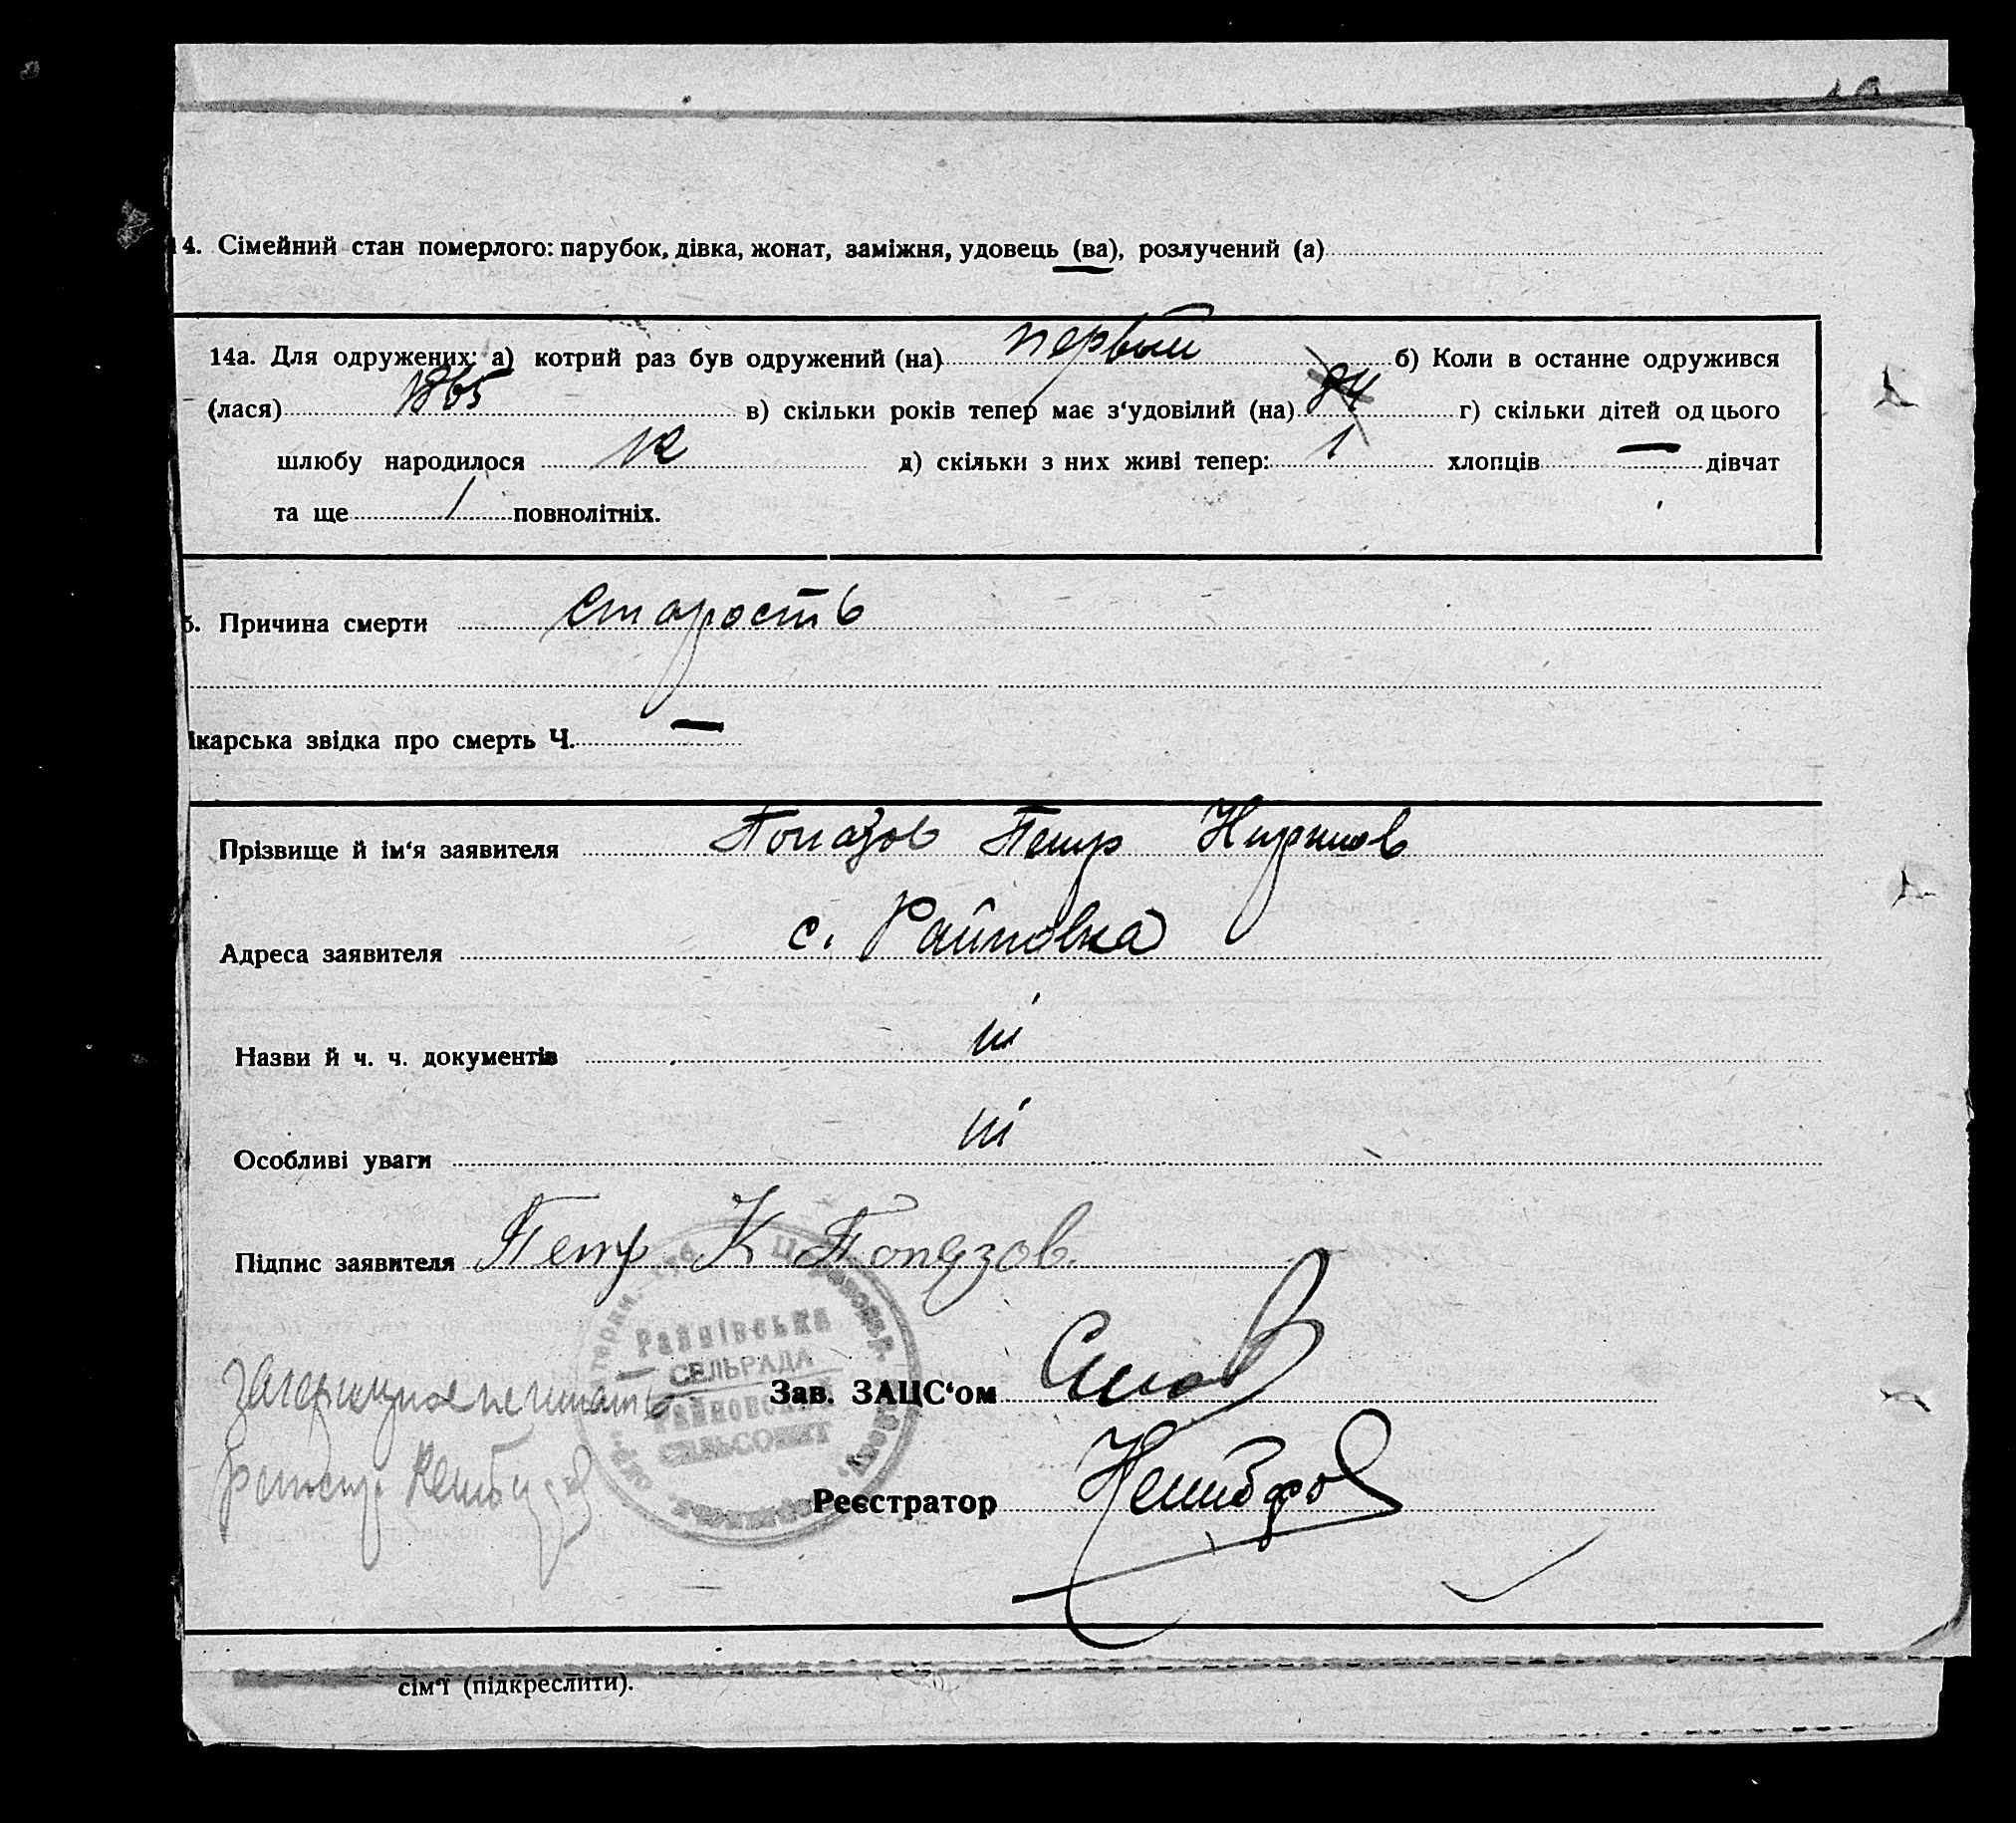 14. Сімейний стан померлого: парубок, дівка, жонат, заміжня, удовець (ва), розлучений (а)
14а. Для одружених: а) котрий раз був одружений (на) первый б) Коли в останне одружився
(лася) 1865 в) скільки років тепер має з‘удовілий (на) 84 г) скільки дітей од цього
шлюбу народилося 12 д) скільки з них живі тепер: 1 хлопців — дівчат
та ще 1 повнолітніх.
5. Причина смерти старость
ікарська звідка про смерть Ч. —
Прізвище й ім‘я заявителя Попазов Петр
Адреса заявителя с. Райновка
Назви й ч. ч. документів ні
Особливі уваги ні
Підпис заявителя Петр К Попазов.
Райнівська
СЕЛЬРАДА
Райновский
СЕЛЬСОВЕТ
Зав. ЗАЦС‘ом
Реєстратор
сім‘ї (підкреслити).